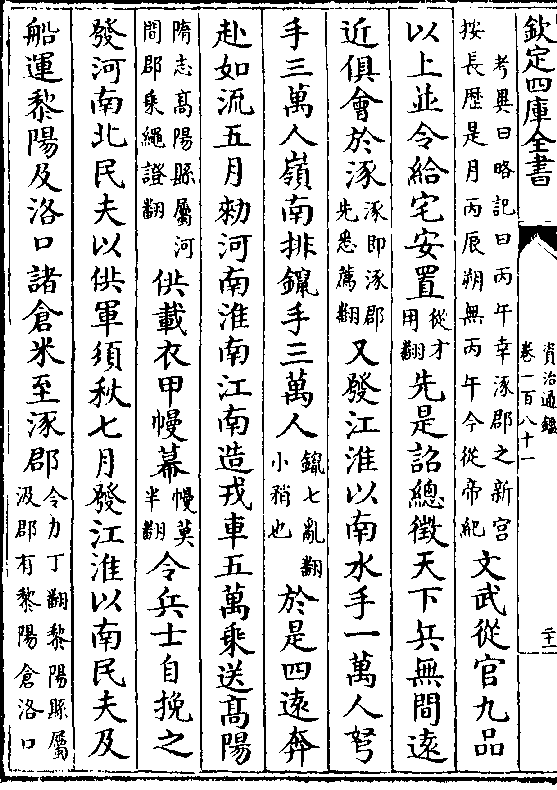 欽定四庫全書
資治通鑑
卷一百八十一
二十二
考異曰略記曰丙午幸涿郡之新宮
按長歴是月丙辰朔無丙午今從帝紀
文武從官九品
以上並令給宅安置
從才
用翻
先是詔總徵天下兵無間逺
近俱會於涿
涿即涿郡
先悉薦翻
又發江淮以南水手一萬人弩
手三萬人嶺南排鑹手三萬人
鑹七亂翻
小矟也
於是四逺奔
赴如流五月勑河南淮南江南造戎車五萬乘送髙陽
隋志髙陽縣屬河
間郡乘繩證翻
供載衣甲幔幕
幔莫
半翻
令兵士自挽之
發河南北民夫以供軍須秋七月發江淮以南民夫及
船運黎陽及洛口諸倉米至涿郡
令力丁翻黎陽縣屬
汲郡有黎陽倉洛口